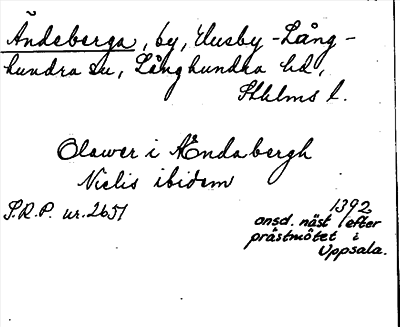 Ändeberga, by, Husby-Lång-
hundra sn, Långhundra hd,
Sthlms l.
Olawer i Ændabergh
Niclis ibidem
S.R.P. nr. 2651
1392
onsd. näst efter
prästmötet i
Uppsala.